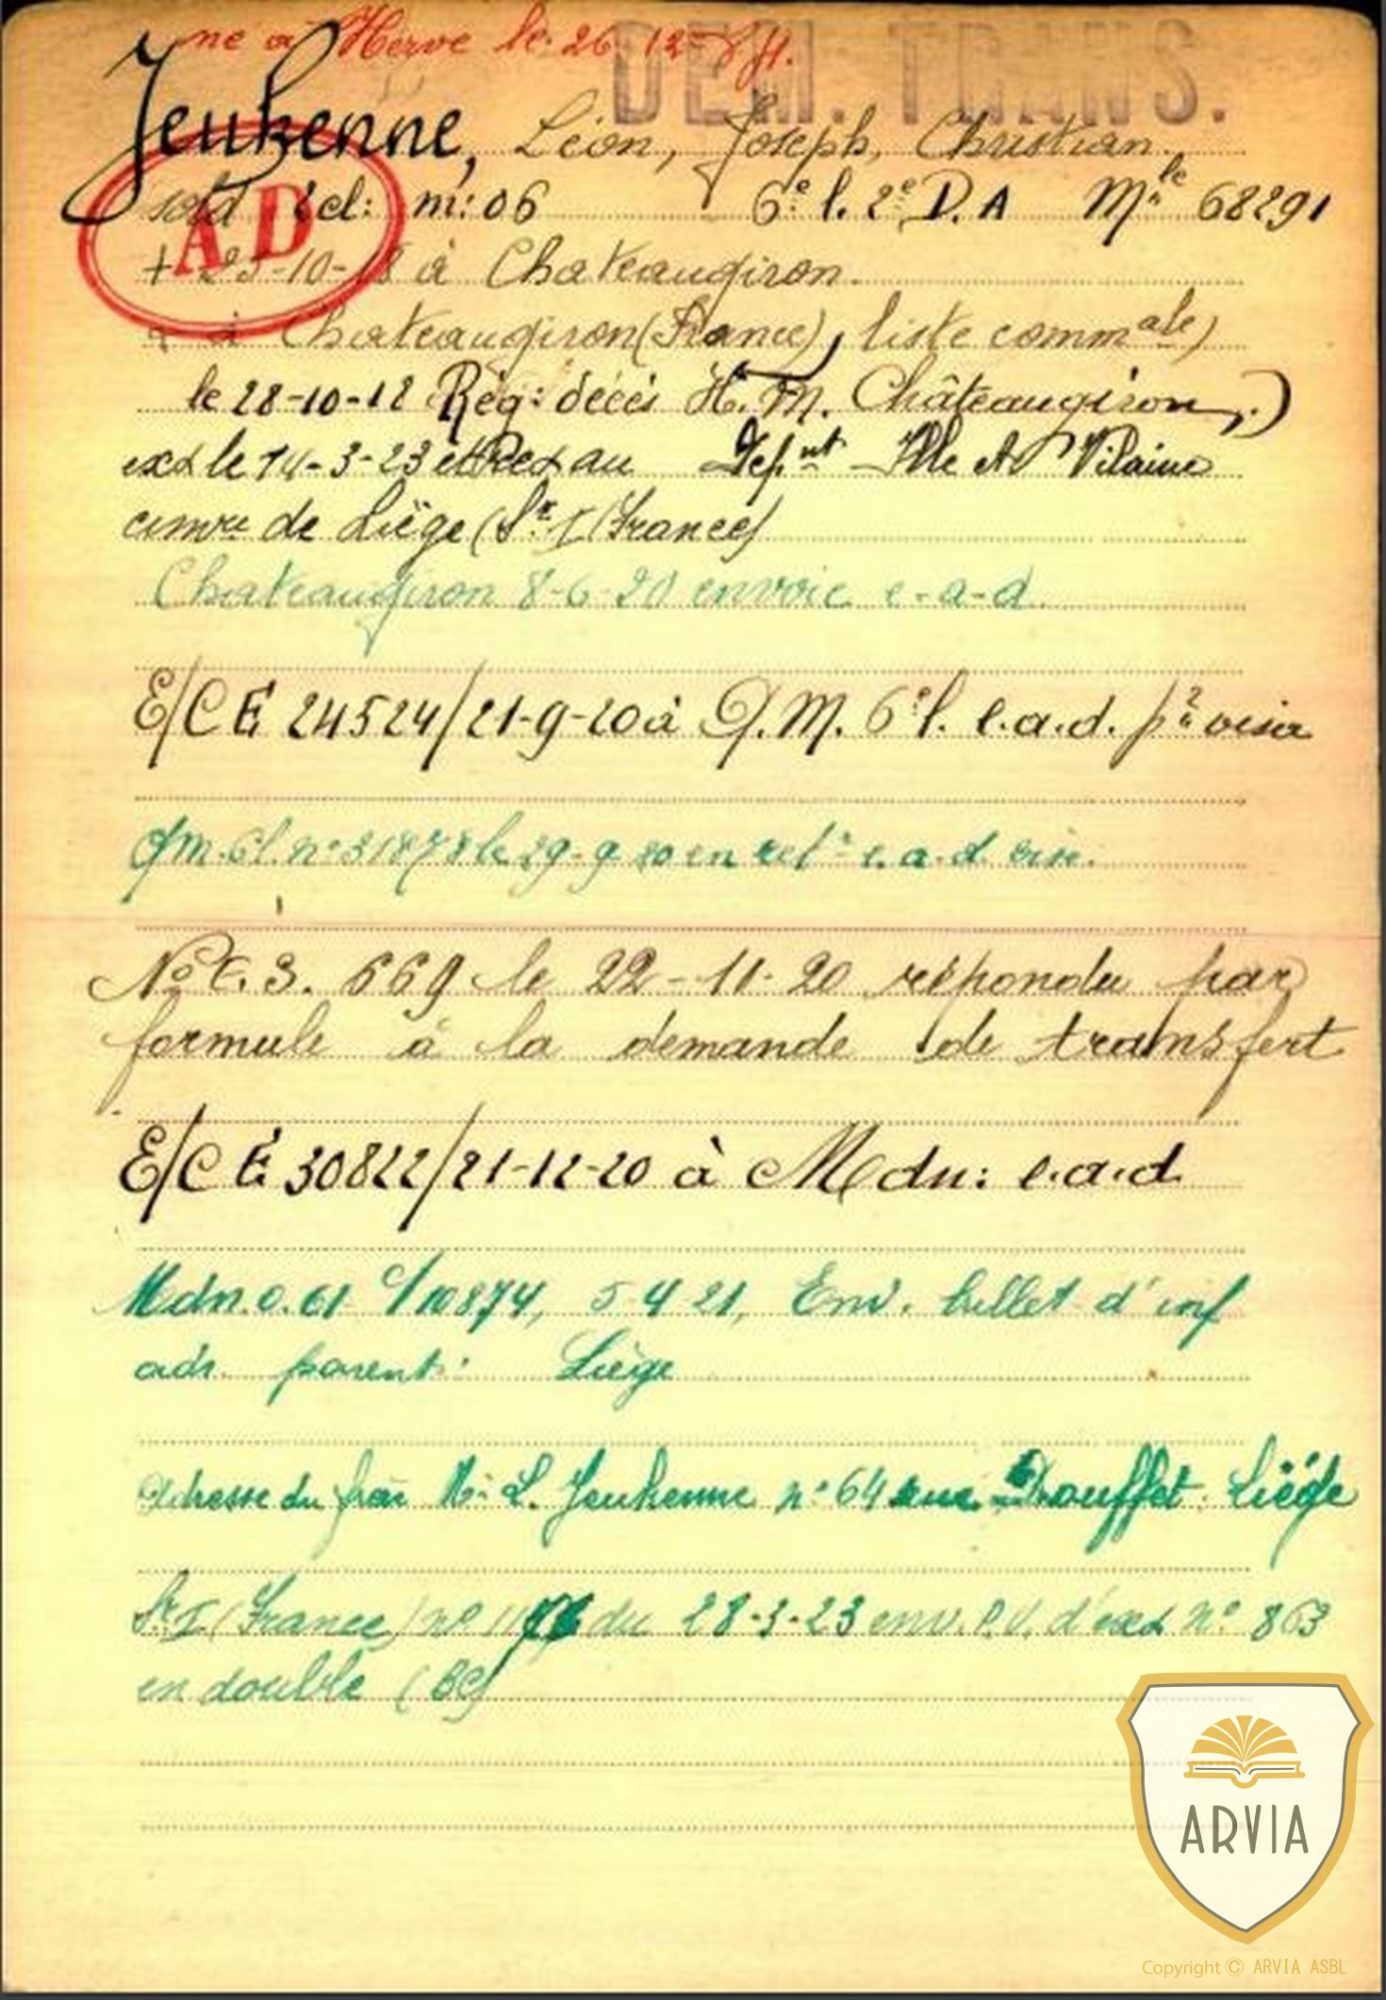 né à Herve le 26-12-
DEM. TRANS.
Jeukenne, Léon, Joseph, Christian.
sold mil: m: 06 6e l. 2e D.A Mle 68291
AD
+ -10-18 à Chateaugiron.
à Chateaugiron (France), liste commale)
le 28-10-18 Rég: décès H.M. Châteaugiron.)
exh le 14-3-23 et au Depnt Ille et Vilaine
cimre de Liège (Sr I (France)
Chateaugiron 8-6-20 envoie e-a-d
E/CE 24524/21-9-20 à Q.M. 6e l. e.a.d. pr visa
Qm. 6l. n° 31878 le 29-9 20 en ret. e.a.d. vis.
N° E. 3. 669 le 22-11-20 répondu par
formule à la demande de transfert
E/CE 30822/21-12-20 à Mdn: e.a.d.
Mdn. 0.61 c/10874, 5 4 21, Env. billet d'inf
adr. parent: Liège
Adresse du frère Mr L. Jeukenne n° 64 rue Douffet. Liége
Sr I (France) n° du 28-3-23 env. P.V. d'exh n° 863
en double (BC)
ARVIA
Copyright © ARVIA ASBL